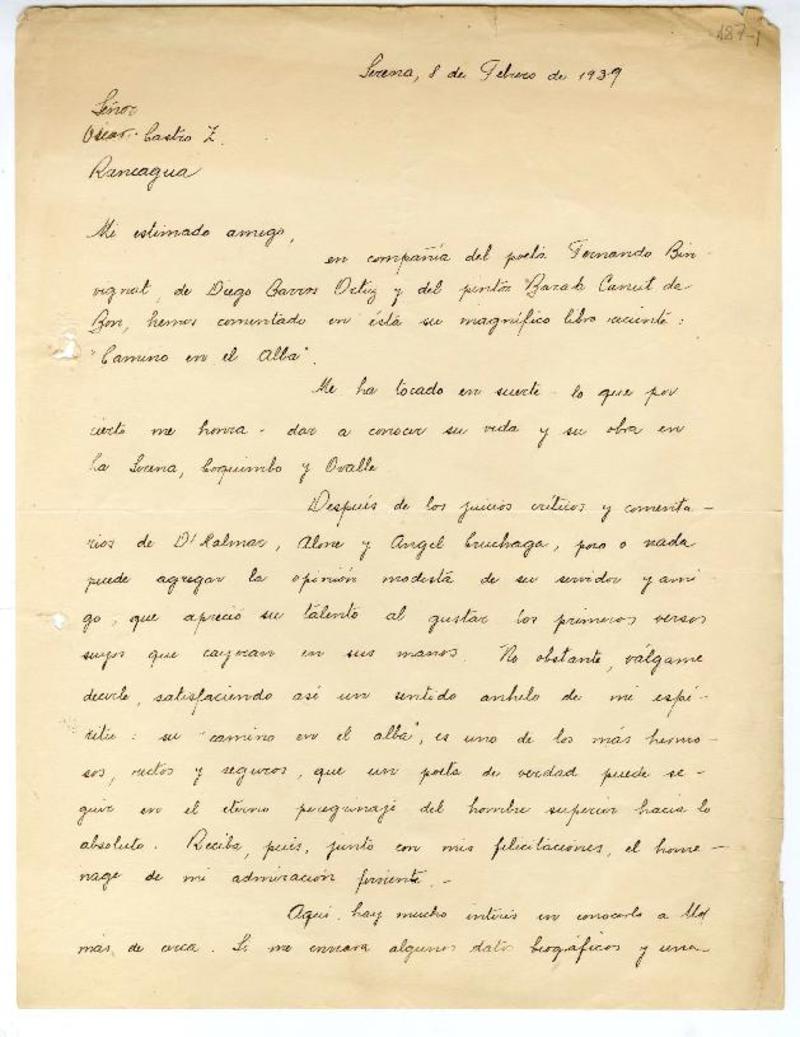 187-1
Serena, 8 de Febrero de 1939
Señor
Oscar Castro Z.
Rancagua
Mi estimado amigo,
en compañía del poeta Fernando Bin-
vignat, de Diego Barros Ortiz y del pintor Barak Canut de
Bon, hemos comentado en ésta su magnífico libro reciente:
"Camino en el Alba".
Me ha tocado en suerte - lo que por
cierto me honra - dar a conocer su vida y su obra en
La Serena, Coquimbo y Ovalle
Después de los juicios críticos y comenta-
rios de D'Halmar, Alone y Angel Cruchaga, poco o nada
puede agregar la opinión modesta de su servidor y ami
go, que apreció su talento al gustar los primeros versos
suyos que cayeran en sus manos. No obstante, válgame
decirle, satisfaciendo así un sentido anhelo de mi espí-
ritu: su "camino en el alba", es uno de los más hermo-
sos, rectos y seguros, que un poeta de verdad puede se-
guir en el eterno peregrinaje del hombre superior hacia lo
absoluto. Reciba, pues, junto con mis felicitaciones, el home-
nage de mi admiración ferviente.-
Aquí, hay mucho interés en conocerlo a Ud
más de cerca. Si me enviara algunos datos biográficos y una